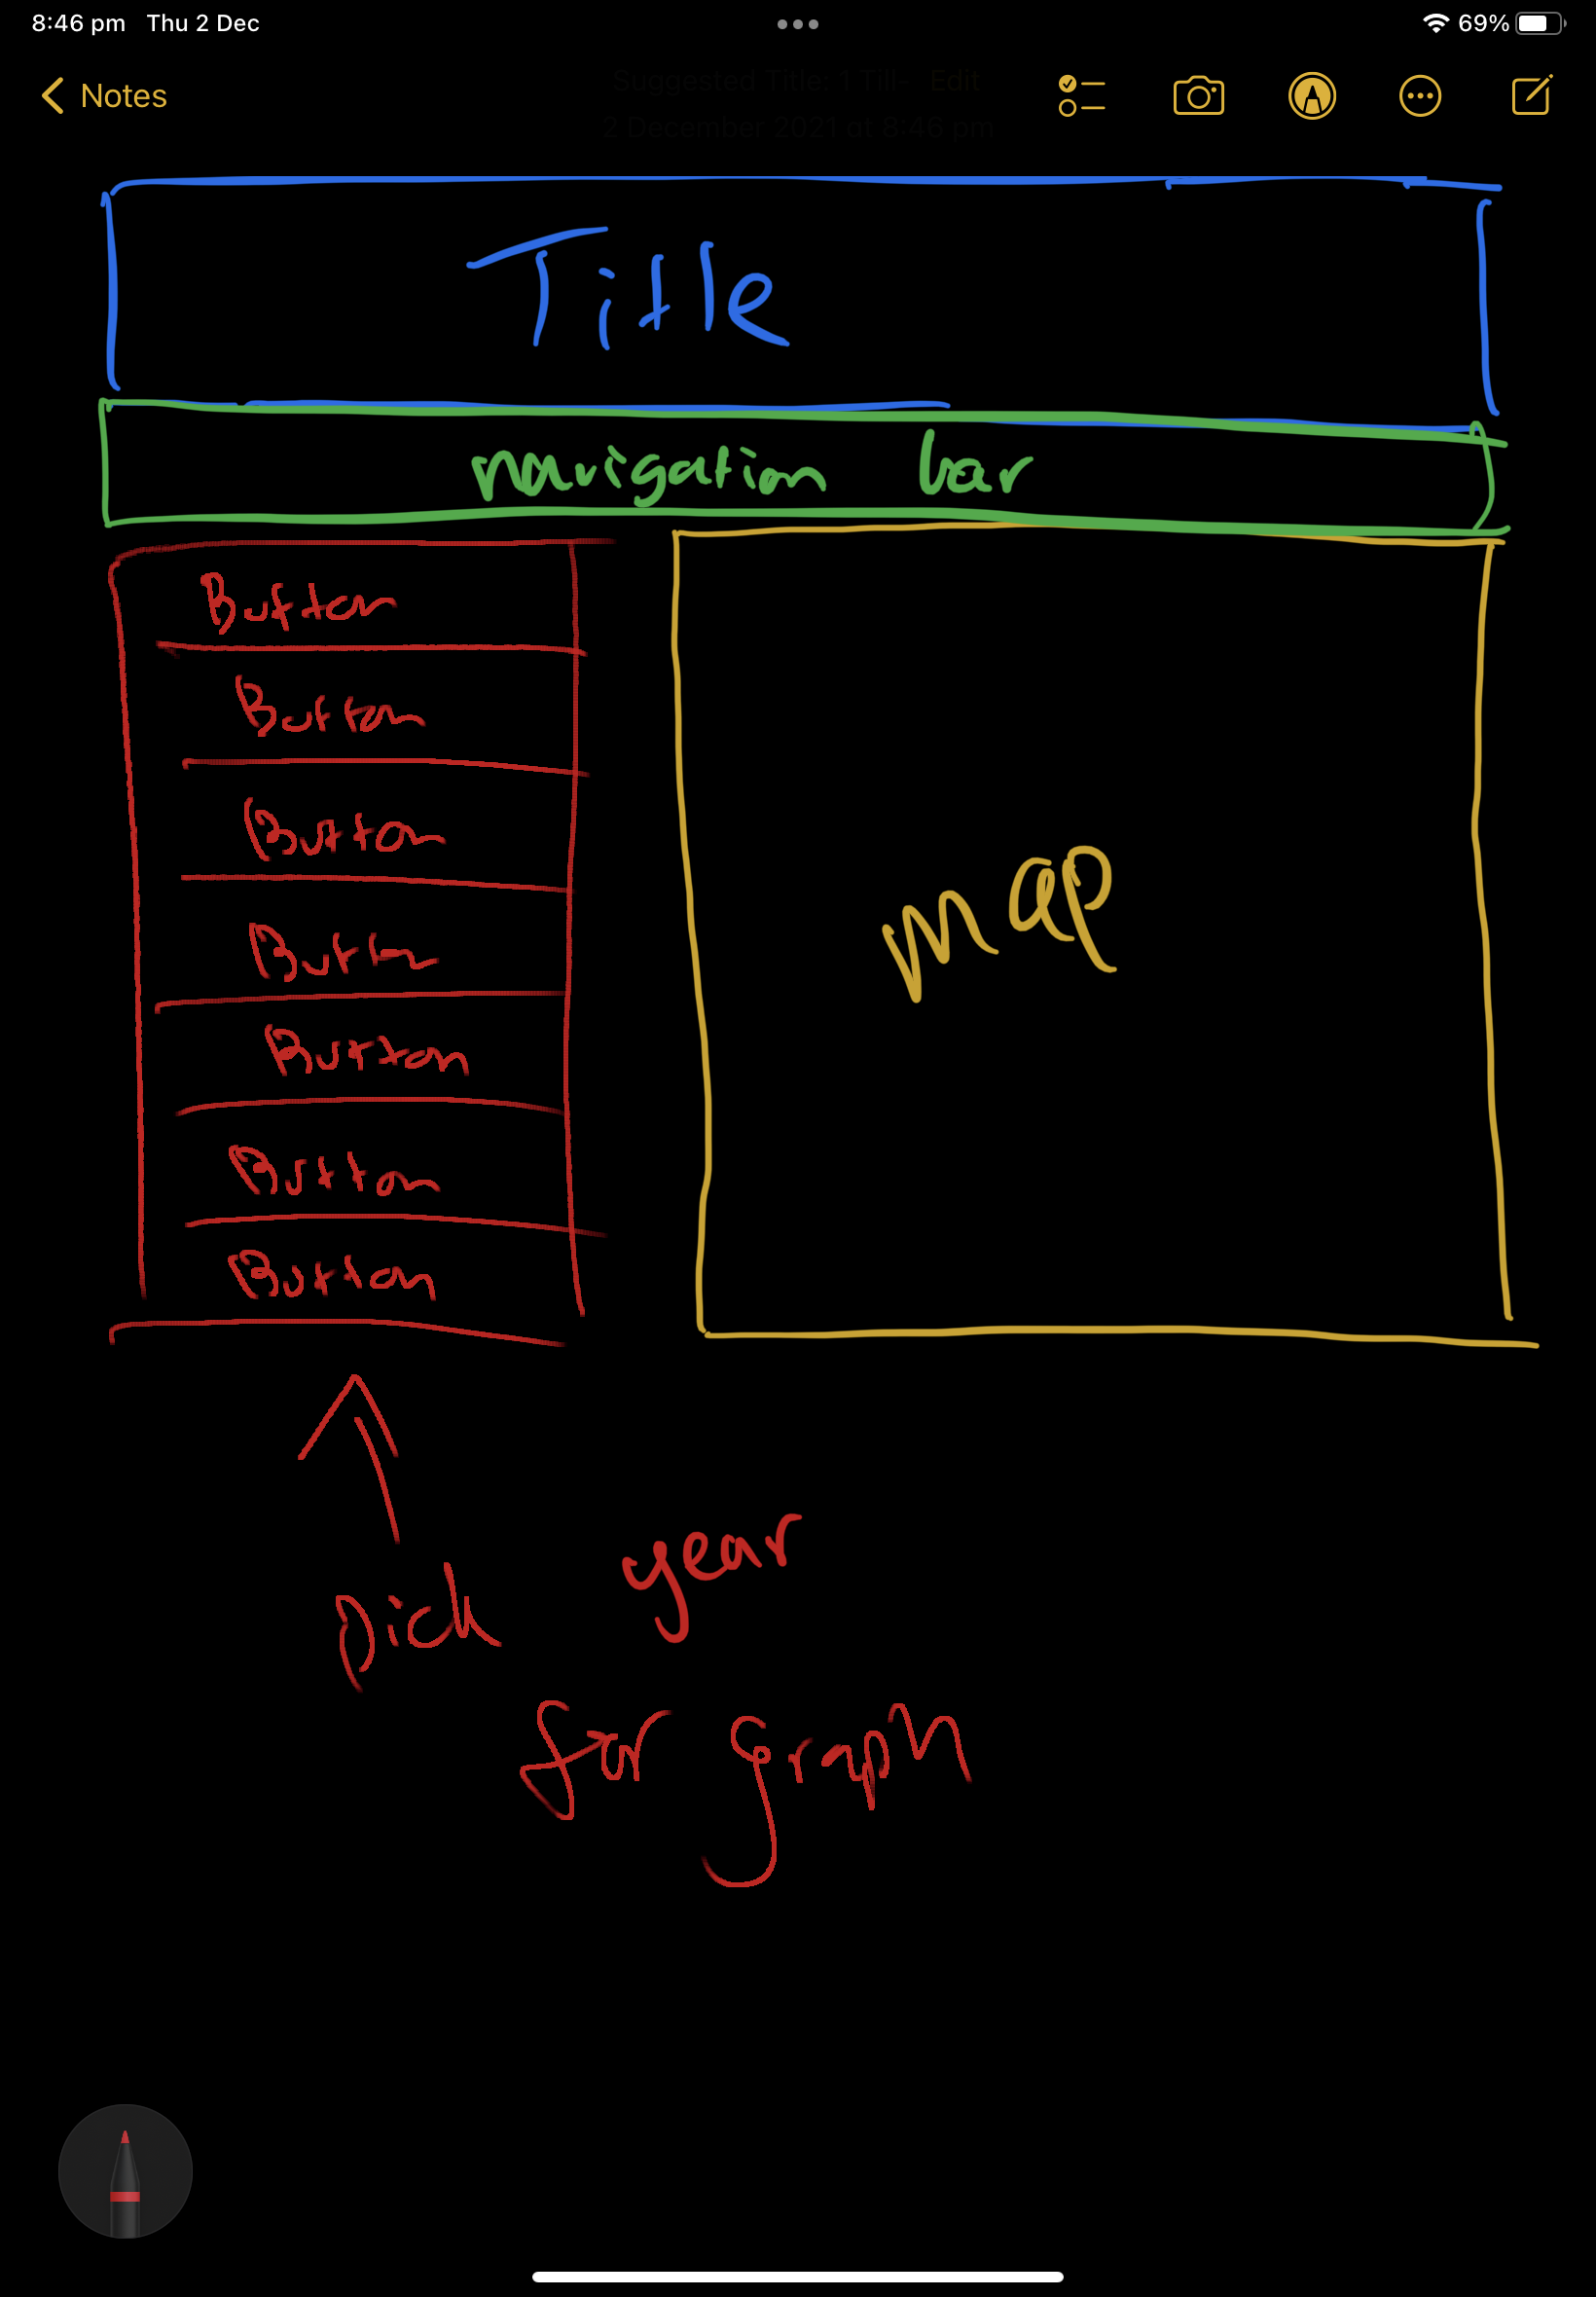 8:46 pm Thu 2 Dec
69%
Notes
Suggested Title: 1 Till- Edit
2 December 2021 at 8:46 pm
Title
navigation bar
Button
Button
Button
Button
Button
Button
Button
Map
pick year
for graph